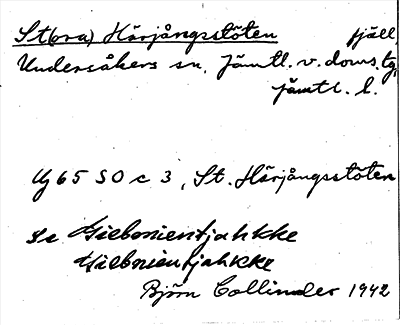 St(ora) Härjångsstöten fjäll,
Undersåkers sn. Jämtl. v. doms. tg,
Jämtl. l.
Ug 65 SO c 3, St. Härjångsstöten
Se Gielbonientjahkke
Gielbonientjahkke
Björn Collinder 1942